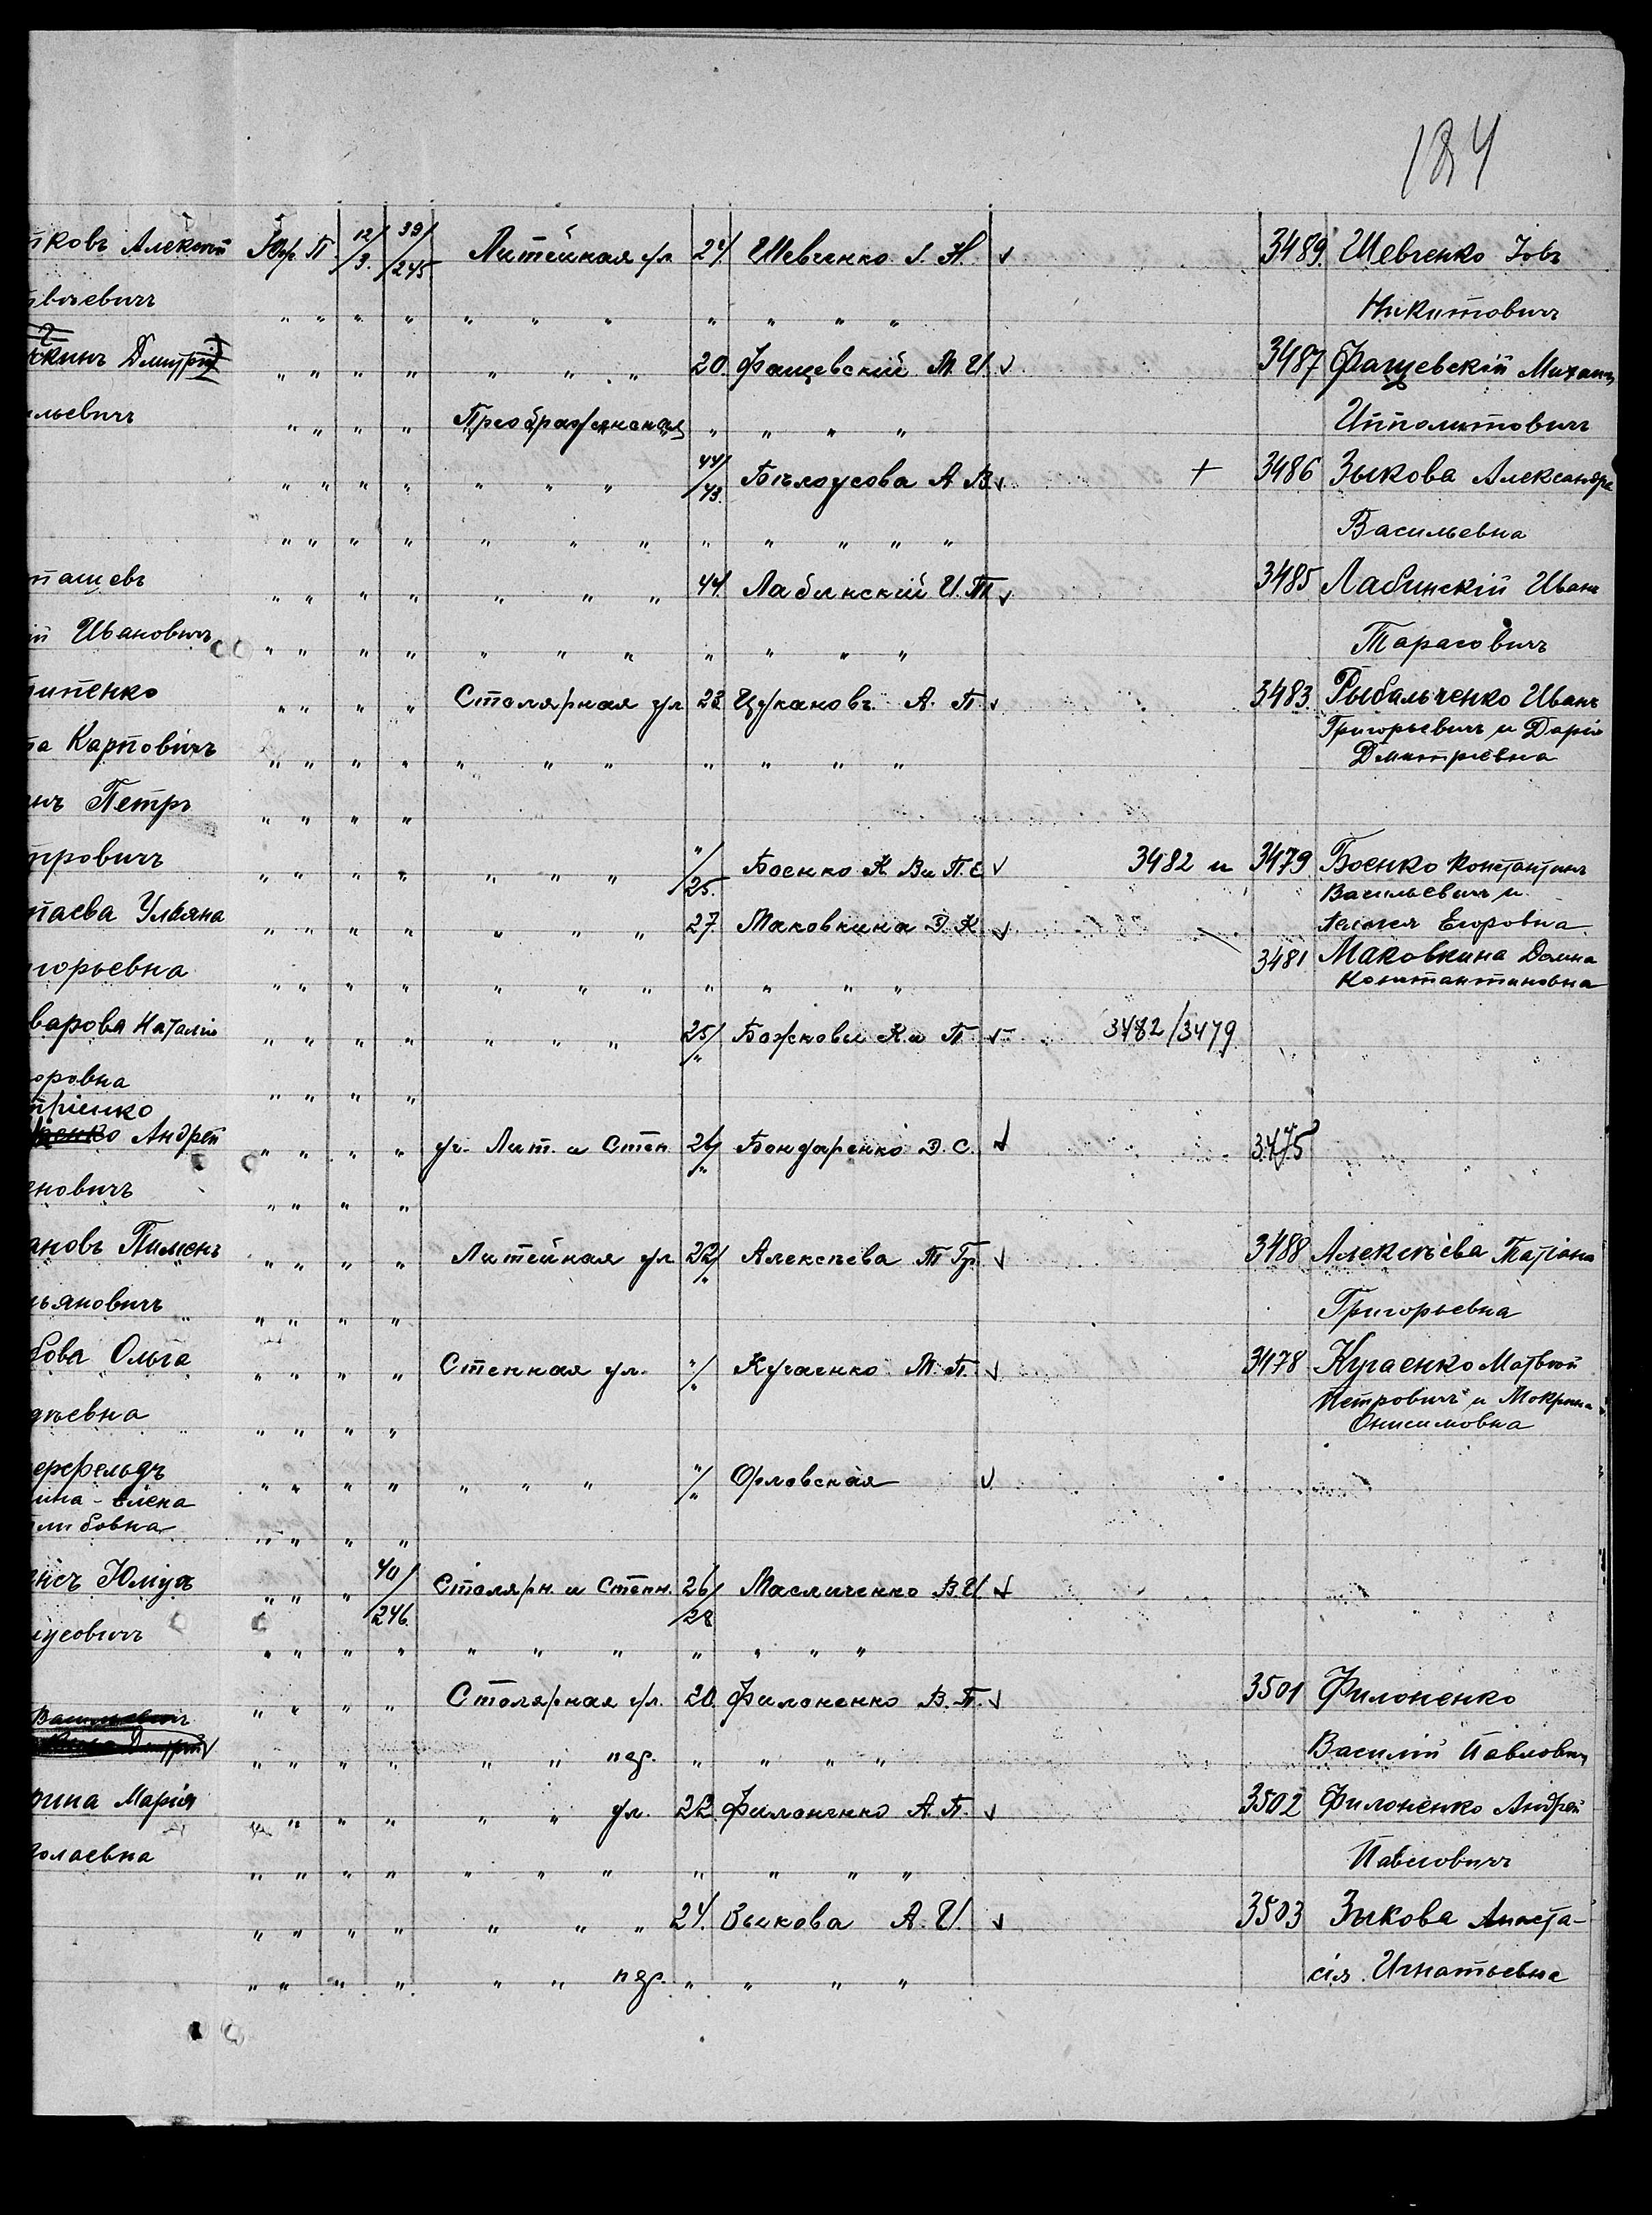 184
тковъ Алексѣй Юр. П. 12/3. 39/245 Литейная ул 24. Шевченко І. Н. ✓ 3489. Шевченко Іовъ
" " " " " " " " " " " Никитовичъ
Дмитрій " " " " " " " 20. Фащевскій М. И. ✓ 3487 Фащевскій Михаилъ
льевичъ " " " " Преображенская " " " " Ипполитовичъ
" " " " " " " 44/43. Бѣлоусова А В ✓ + 3486 Зыкова Александра
" " " " " " " " " " " " Васильевна
ташевъ " " " " " " " 44. Лабинскій И. Т. ✓ 3485 Лабинскій Иванъ
ій Ивановичъ " " " " " " " " " " " Тарасовичъ
ипенко " " " " Столярная ул 23 Цукановъ А. П. ✓ 3483. Рыбальченко Иванъ
Григорьевичъ и Дарія
та Карповичъ " " " " " " " " " " " Дмитріевна
нъ Петръ " " " "
тровичъ " " " " " " " "/25. Боенко К В и П. Е. ✓ 3482 и 3479 Боенко Константинъ
Васильевичъ и
таева Ульяна " " " " " " " 27. Маковкина Д. К. ✓ Егоровна
горьевна " " " " " " " " " " " 3481 Маковкина Домна
Константиновна
варова Наталія " " " " " " " 25/" Божковы К. и П. ✓ 3482/3479
оровна " " " "
тріенко
Андрей " " " " уг. Лит. и Степ. 26/" Бондаренко Д. С. ✓ 3475
еновичъ " " " "
ановъ Пименъ " " " " Литейная ул 22/" Алексѣева Т Гр. ✓ 3488 Алексѣева Татіана
льяновичъ " " " " Григорьевна
бова Ольга " " " " Степная ул. "/" Кугаенко М. П. ✓ 3478 Кугаенко Матвѣй
Петровичъ и Мокрина
дѣевна " " " " Онисимовна
ерфельдъ " " " " " " " "/" Орловская ✓
ина-Елена
либовна " " " "
" " " 40/246. Столярн. и Степн. 26/28 Масличенко В. И. ✓
усовичъ " " " " " " " " " " "
" " " " Столярная ул. 20. Филоненко В. П. ✓ 3501 Филоненко
Васильевичъ
" " " " " " пер. " " " " Василій Павловичъ
рина Марія " " " " " " ул. 22 Филоненко А. П. ✓ 3502 Филоненко Андрей
олаевна " " " " " " " " " " " Павловичъ
" " " " " " " 24. Зыкова А. И. ✓ 3503 Зыкова Анаста-
" " " " " " пер. " " " " сія Игнатьевна